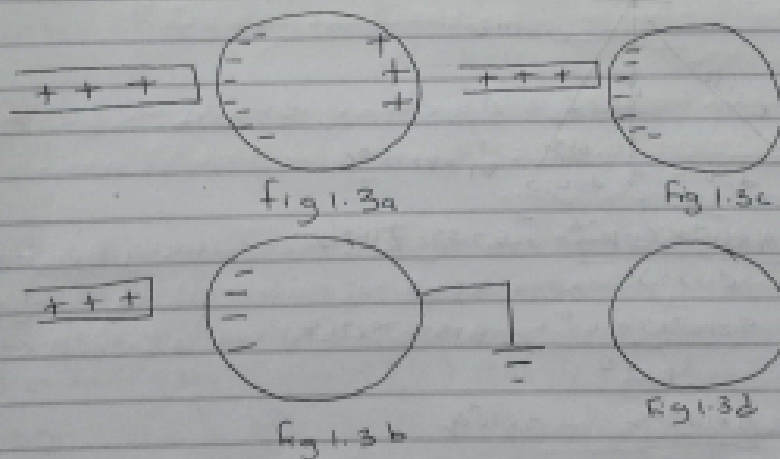 + + +
- - - - - -
+ + +
+ + +
- - - - - -
fig 1.3a
Fig 1.3c
+ + +
- - - -
Fig 1.3b
Fig 1.3d